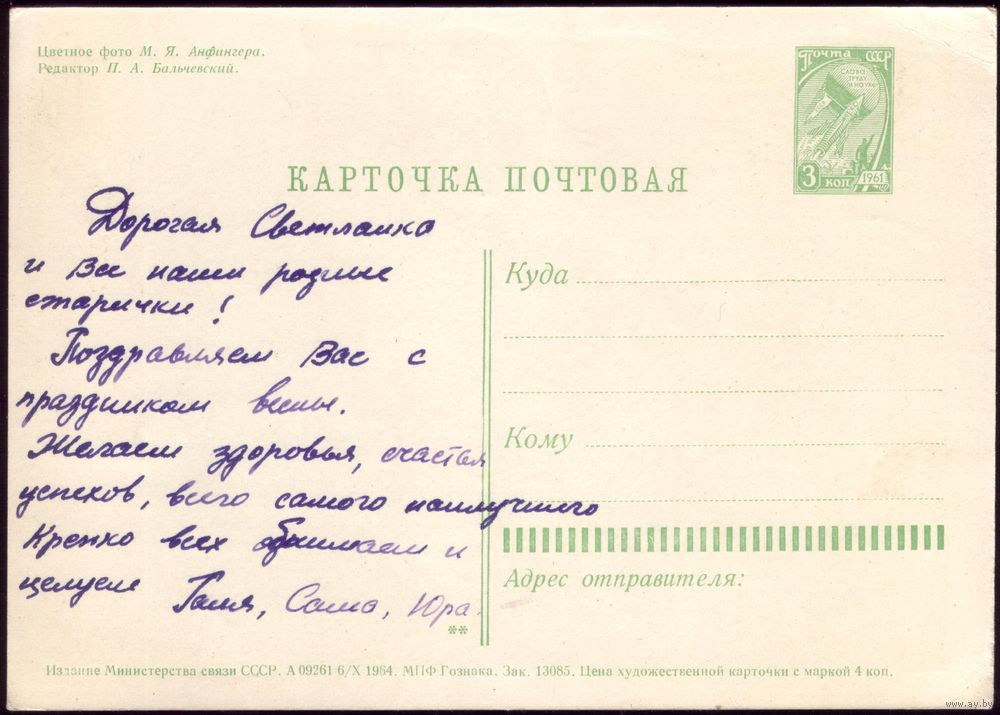 Цветное фото М. Я. Анфингера.
Редактор П. А. Бальчевский.
ПОЧТА СССР
СЛАВА
ТРУДУ
И НАУКЕ
3 КОП
1961
КАРТОЧКА ПОЧТОВАЯ
Дорогая Светланка
и Все наши родные
старички!
Поздравляем Вас с
праздником весны.
Желаем здоровья, счастья
успехов, всего самого наилучшего
Крепко всех обнимаем и
целуем Галя, Саша, Юра.
**
Куда
Кому
Адрес отправителя:
Издание Министерства связи СССР. А 09261 6/X 1964. МПФ Гознака. Зак. 13085. Цена художественной карточки с маркой 4 коп.
www.ay.by